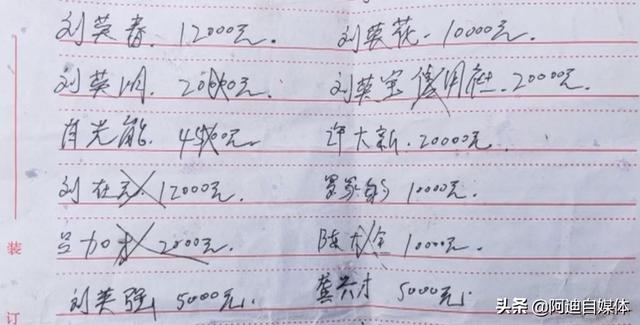 刘英春. 12000元. 刘英花. 10000元.
刘英明. 20000元. 刘英宝 信用社. 20000元.
肖光能. 4500元. 许大新. 20000元.
刘在 12000元. 10000元.
吕加才 2000元. 陈大全 10000元.
刘英强 5000元. 龚兴才 5000元.
装
订
头条 @阿迪自媒体